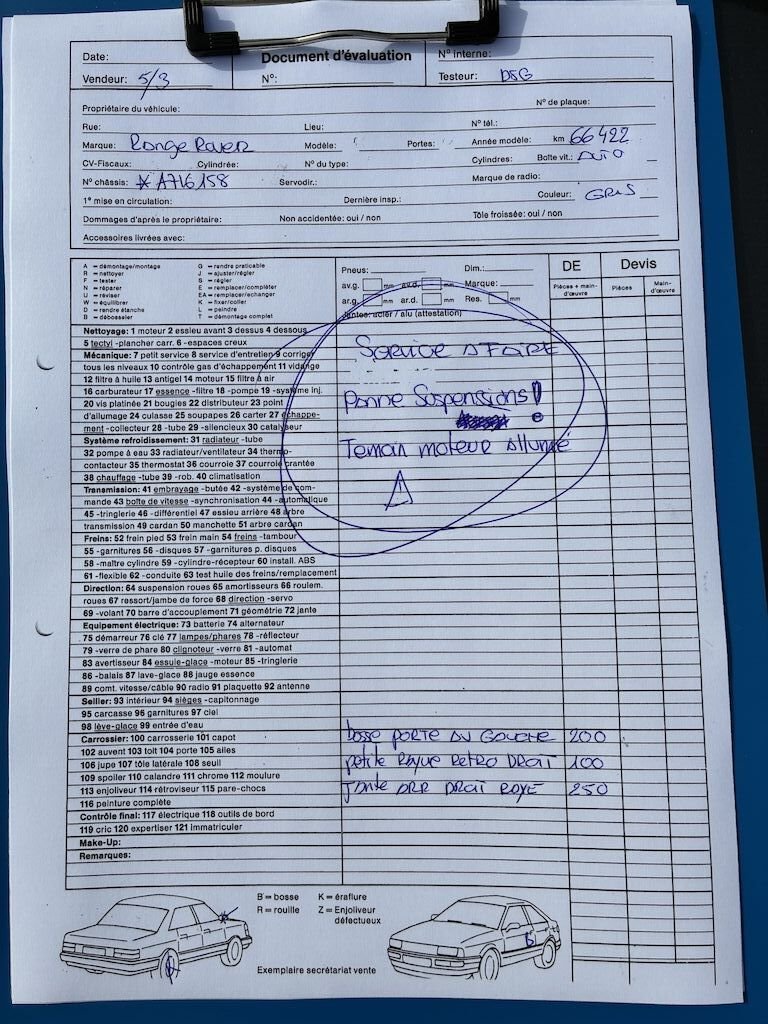 Document d'évaluation
Date:
N° interne:
Vendeur: 5/3
N°:
Testeur: DSG
Propriétaire du véhicule:
N° de plaque:
Rue:
Lieu:
N° tél.:
Marque: Range Rover
Modèle:
Portes:
Année modèle:
km 66422
CV-Fiscaux:
Cylindrée:
N° du type:
Cylindres:
Boîte vit.: AUTO
N° châssis: * A716158
Servodir.:
Marque de radio:
1° mise en circulation:
Dernière insp.:
Couleur: GRIS
Dommages d'après le propriétaire:
Non accidentée: oui / non
Tôle froissée: oui / non
Accessoires livrées avec:
A = démontage/montage
R = nettoyer
F = tester
N = réparer
U = réviser
W = équilibrer
D = rendre étanche
B = débosseler
G = rendre praticable
J = ajuster/régler
S = régler
E = remplacer/compléter
EA = remplacer/echanger
K = fixer/coller
L = peindre
T = démontage complet
Pneus:
Dim.:
av.g. mm av.d. mm Marque:
ar.g. mm ar.d. mm Res. mm
Jantes: acier / alu (attestation)
DE
Devis
Pièces + main-d'œuvre
Pièces
Main-d'œuvre
Nettoyage: 1 moteur 2 essieu avant 3 dessus 4 dessous
5 tectyl -plancher carr. 6 -espaces creux
Mécanique: 7 petit service 8 service d'entretien 9 corriger
tous les niveaux 10 contrôle gaz d'échappement 11 vidange
12 filtre à huile 13 antigel 14 moteur 15 filtre à air
16 carburateur 17 essence -filtre 18 -pompe 19 -système inj.
20 vis platinée 21 bougies 22 distributeur 23 point
d'allumage 24 culasse 25 soupapes 26 carter 27 échappe-
ment -collecteur 28 -tube 29 -silencieux 30 catalyseur
Système refroidissement: 31 radiateur -tube
32 pompe à eau 33 radiateur/ventilateur 34 thermo-
contacteur 35 thermostat 36 courroie 37 courroie crantée
38 chauffage -tube 39 -rob. 40 climatisation
Transmission: 41 embrayage -butée 42 -système de com-
mande 43 boîte de vitesse -synchronisation 44 -automatique
45 -tringlerie 46 -différentiel 47 essieu arrière 48 arbre
transmission 49 cardan 50 manchette 51 arbre cardan
Freins: 52 frein pied 53 frein main 54 freins -tambour
55 -garnitures 56 -disques 57 -garnitures p. disques
58 -maître cylindre 59 -cylindre-récepteur 60 install. ABS
61 -flexible 62 -conduite 63 test huile des freins/remplacement
Direction: 64 suspension roues 65 amortisseurs 66 roulem.
roues 67 ressort/jambe de force 68 direction -servo
69 -volant 70 barre d'accouplement 71 géométrie 72 jante
Equipement électrique: 73 batterie 74 alternateur
75 démarreur 76 clé 77 lampes/phares 78 -réflecteur
79 -verre de phare 80 clignoteur -verre 81 -automat
83 avertisseur 84 essuie-glace -moteur 85 -tringlerie
86 -balais 87 lave-glace 88 jauge essence
89 comt. vitesse/câble 90 radio 91 plaquette 92 antenne
Sellier: 93 intérieur 94 sièges -capitonnage
95 carcasse 96 garnitures 97 ciel
98 lève-glace 99 entrée d'eau
Carrossier: 100 carrosserie 101 capot
102 auvent 103 toit 104 porte 105 ailes
106 jupe 107 tôle latérale 108 seuil
109 spoiler 110 calandre 111 chrome 112 moulure
113 enjoliveur 114 rétroviseur 115 pare-chocs
116 peinture complète
Contrôle final: 117 électrique 118 outils de bord
119 cric 120 expertiser 121 immatriculer
Make-Up:
Remarques:
Service A FAIRE
Panne Suspensions!
Temoin moteur Allumé
bosse PORTE AV GAUCHE 200
petite Rayue Retro DROIT 100
Jante ARR DROIT RAYE 250
B = bosse
R = rouille
K = éraflure
Z = Enjoliveur
défectueux
B
Exemplaire secrétariat vente